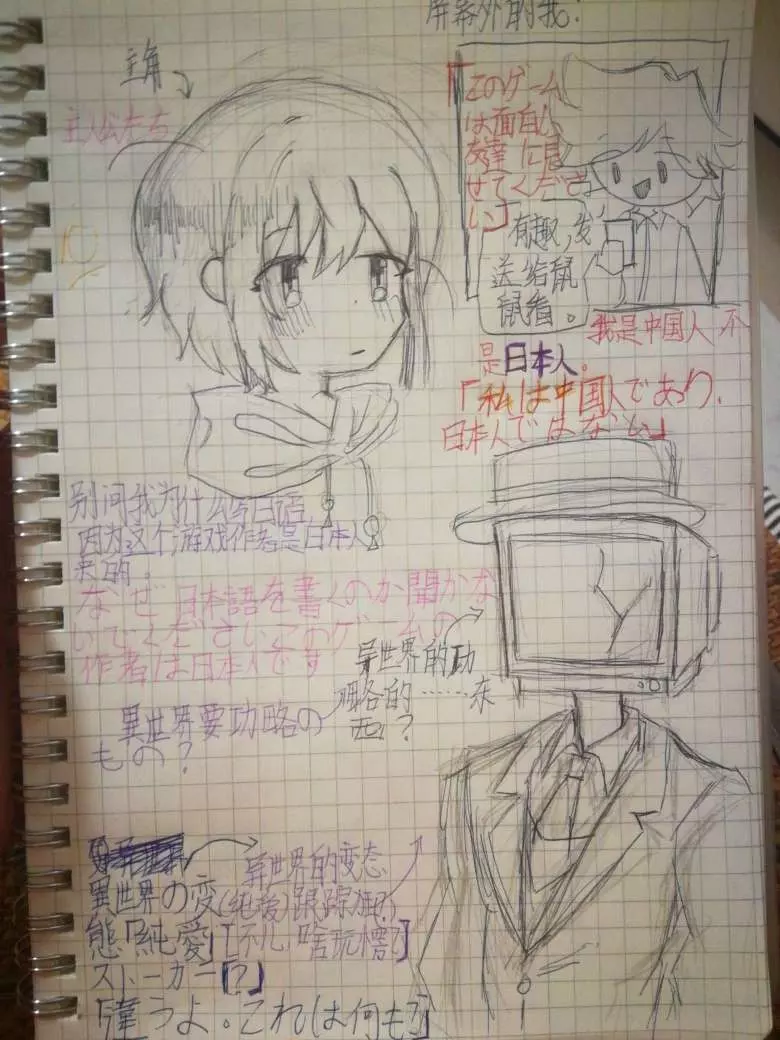 屏幕外的我：
主角
主人公たち
「このゲーム
は面白い
友達に見
せてくださ
い」
有趣，发
送给鼠
鼠看。
我是中国人 不
是日本人。
「私は中国人であり、
日本人ではない」
别问我为什么写日语
因为这个游戏作者是日本人
来的。
なぜ日本語を書くのか聞かな
いでくださいこのゲームの
作者は日本人です
异世界的攻
略的……东
西？
異世界要功略の
もの？
异世界的变态
異世界の変
(纯爱)跟踪
態「純愛」[不儿，啥玩
ストーカー「？」
「違うよ。これは何も？」